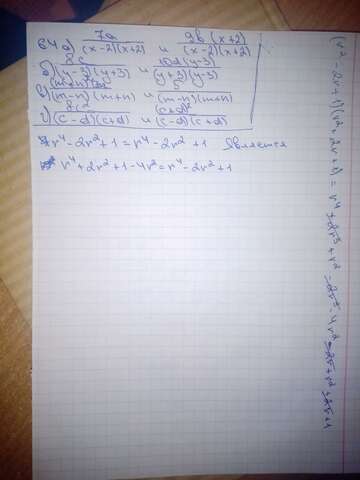 64 a) 7a/((x-2)(x+2)) и 9b(x+2)/((x-2)(x+2))
б) 8c/((y-3)(y+3)) и 10d(y-3)/((y+3)(y-3))
в) /((m-n)(m+n)) и 5/((m-n)(m+n))
г) 8c²/((c-d)(c+d)) и /((c-d)(c+d))
r⁴-2r²+1=r⁴-2r²+1 Является
r⁴+2r²+1-4r²=r⁴-2r²+1
(r²-2r+1)(r²+2r+1)=r⁴+2r³+r²-2r³-4r²-2r+r²+2r+1